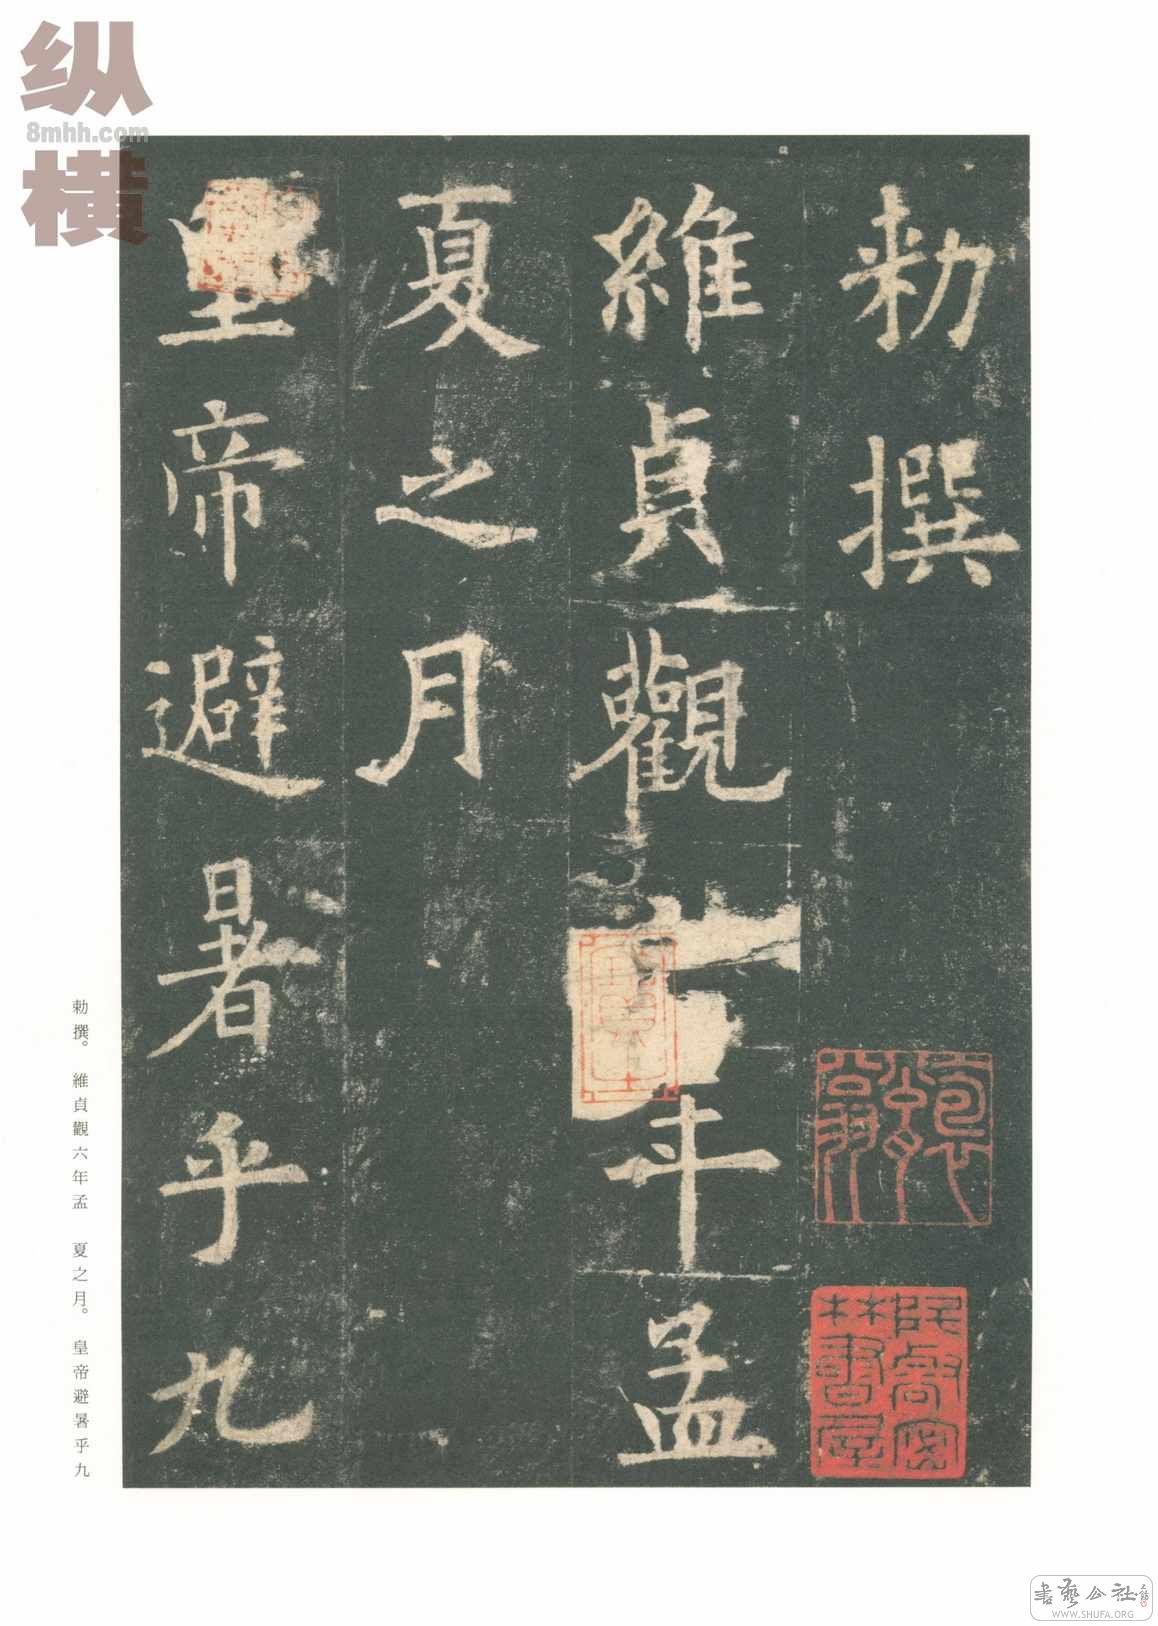 勑撰
維貞觀六年孟
夏之月
皇帝避暑乎九
勑撰。 維貞觀六年孟 夏之月。 皇帝避暑乎九
纵
8mhh.com
横
書藝公社
WWW.SHUFA.ORG